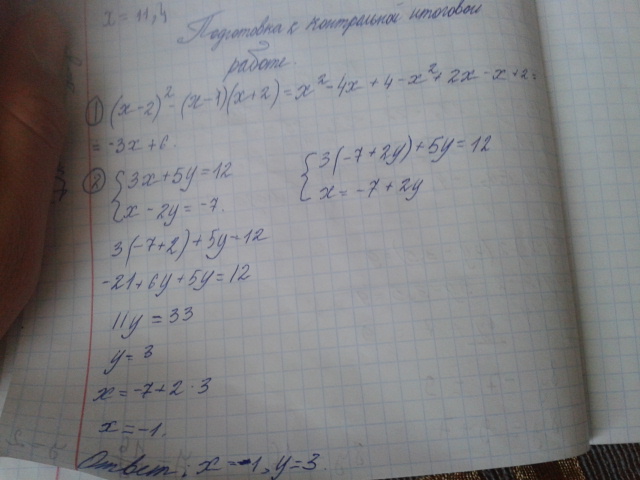 x=11,4
Подготовка к контрольной итоговой
работе.
① (x-2)²-(x-1)(x+2)=x²-4x+4-x²+2x-x+2=
=-3x+6.
② {3x+5y=12
{x-2y=-7.
{3(-7+2y)+5y=12
{x=-7+2y
3(-7+2)+5y=12
-21+6y+5y=12
11y=33
y=3
x=-7+2·3
x=-1.
Ответ: x=-1, y=3.